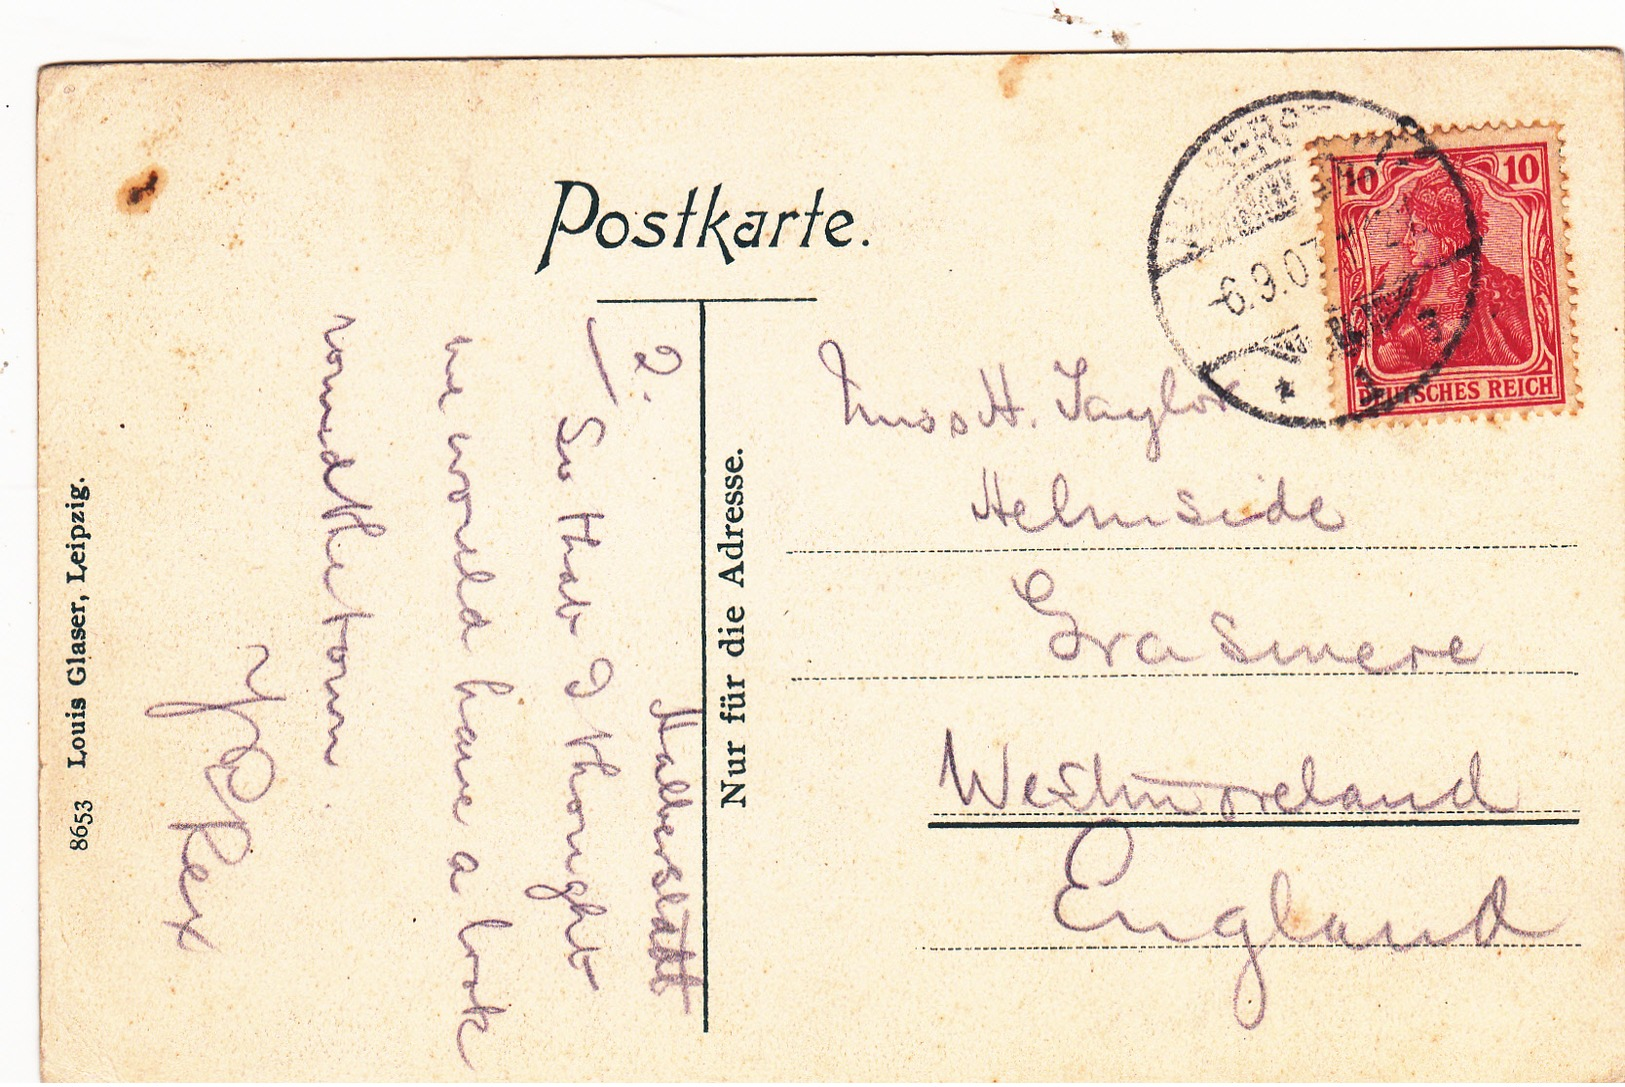 Postkarte.
2.
Halberstadt
So that I thought
we would have a look
round the town.
Rex
Nur für die Adresse.
Miss H. Taylor
Helmside
Grasmere
Westmoreland
England
8653 Louis Glaser, Leipzig.
-6.9.07
10 10
DEUTSCHES REICH